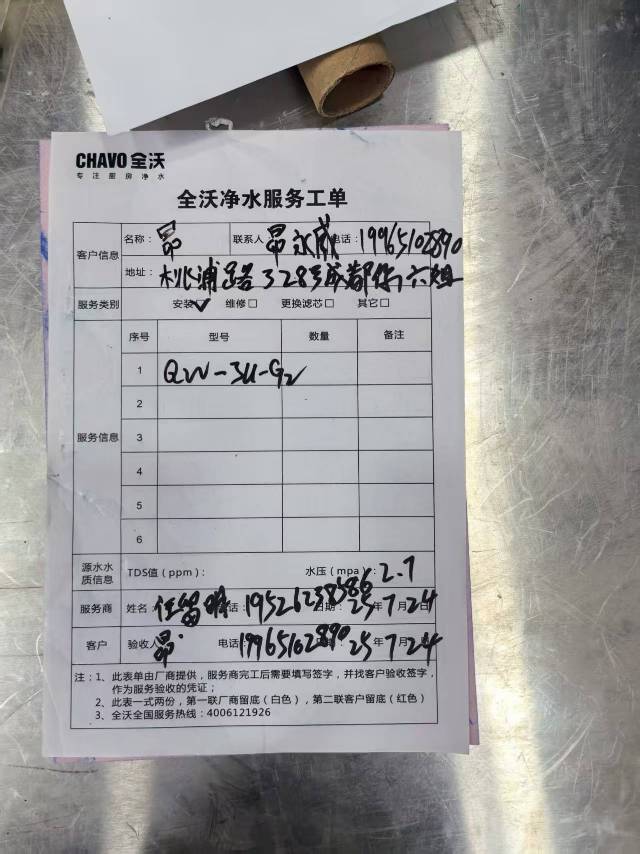 CHAVO 全沃
专注厨房净水
全沃净水服务工单
客户信息
名称： 昂 联系人 昂永威 电话：19965102890
地址： 桃浦路328号成都你六姐
服务类别 安装☑ 维修□ 更换滤芯□ 其它□
服务信息
序号 型号 数量 备注
1 QW-3U-G2
2
3
4
5
6
源水水质信息 TDS值（ppm）： 水压（mpa）：2.7
服务商 姓名： 任 电话：19526238586 日期：25年7月24日
客户 验收人 昂 电话 19965102890 25年7月24
注：1、此表单由厂商提供，服务商完工后需要填写签字，并找客户验收签字，
作为服务验收的凭证；
2、此表一式两份，第一联厂商留底（白色），第二联客户留底（红色）
3、全沃全国服务热线：4006121926